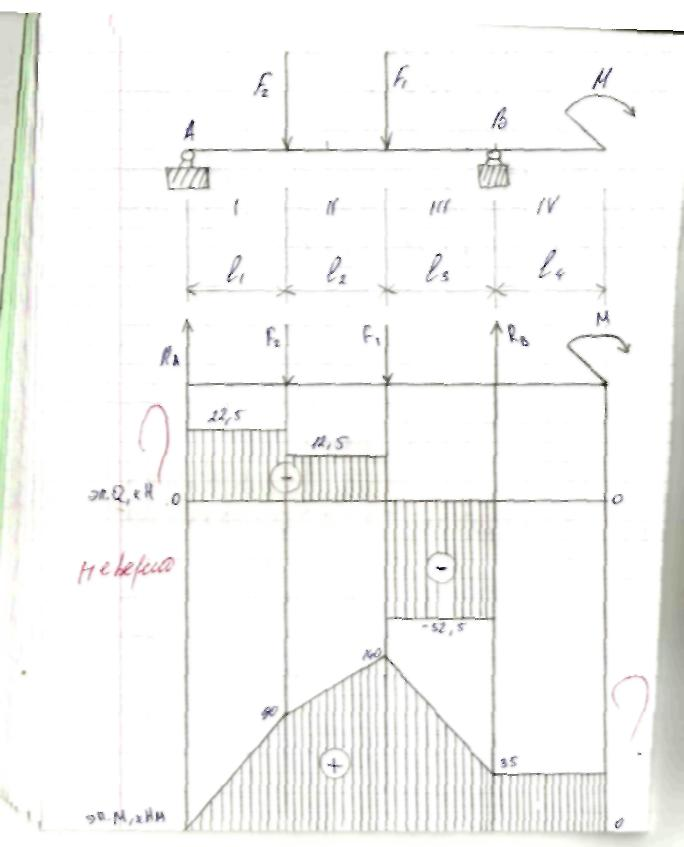 F₂ F₁ M
A B
I II III IV
l₁ l₂ l₃ l₄
R_A F₂ F₁ R_B M
22,5 12,5
?
-
эп.Q, кН 0 0
неверно
-
-52,5
140
90
?
+
35
эп.М, кНм 0